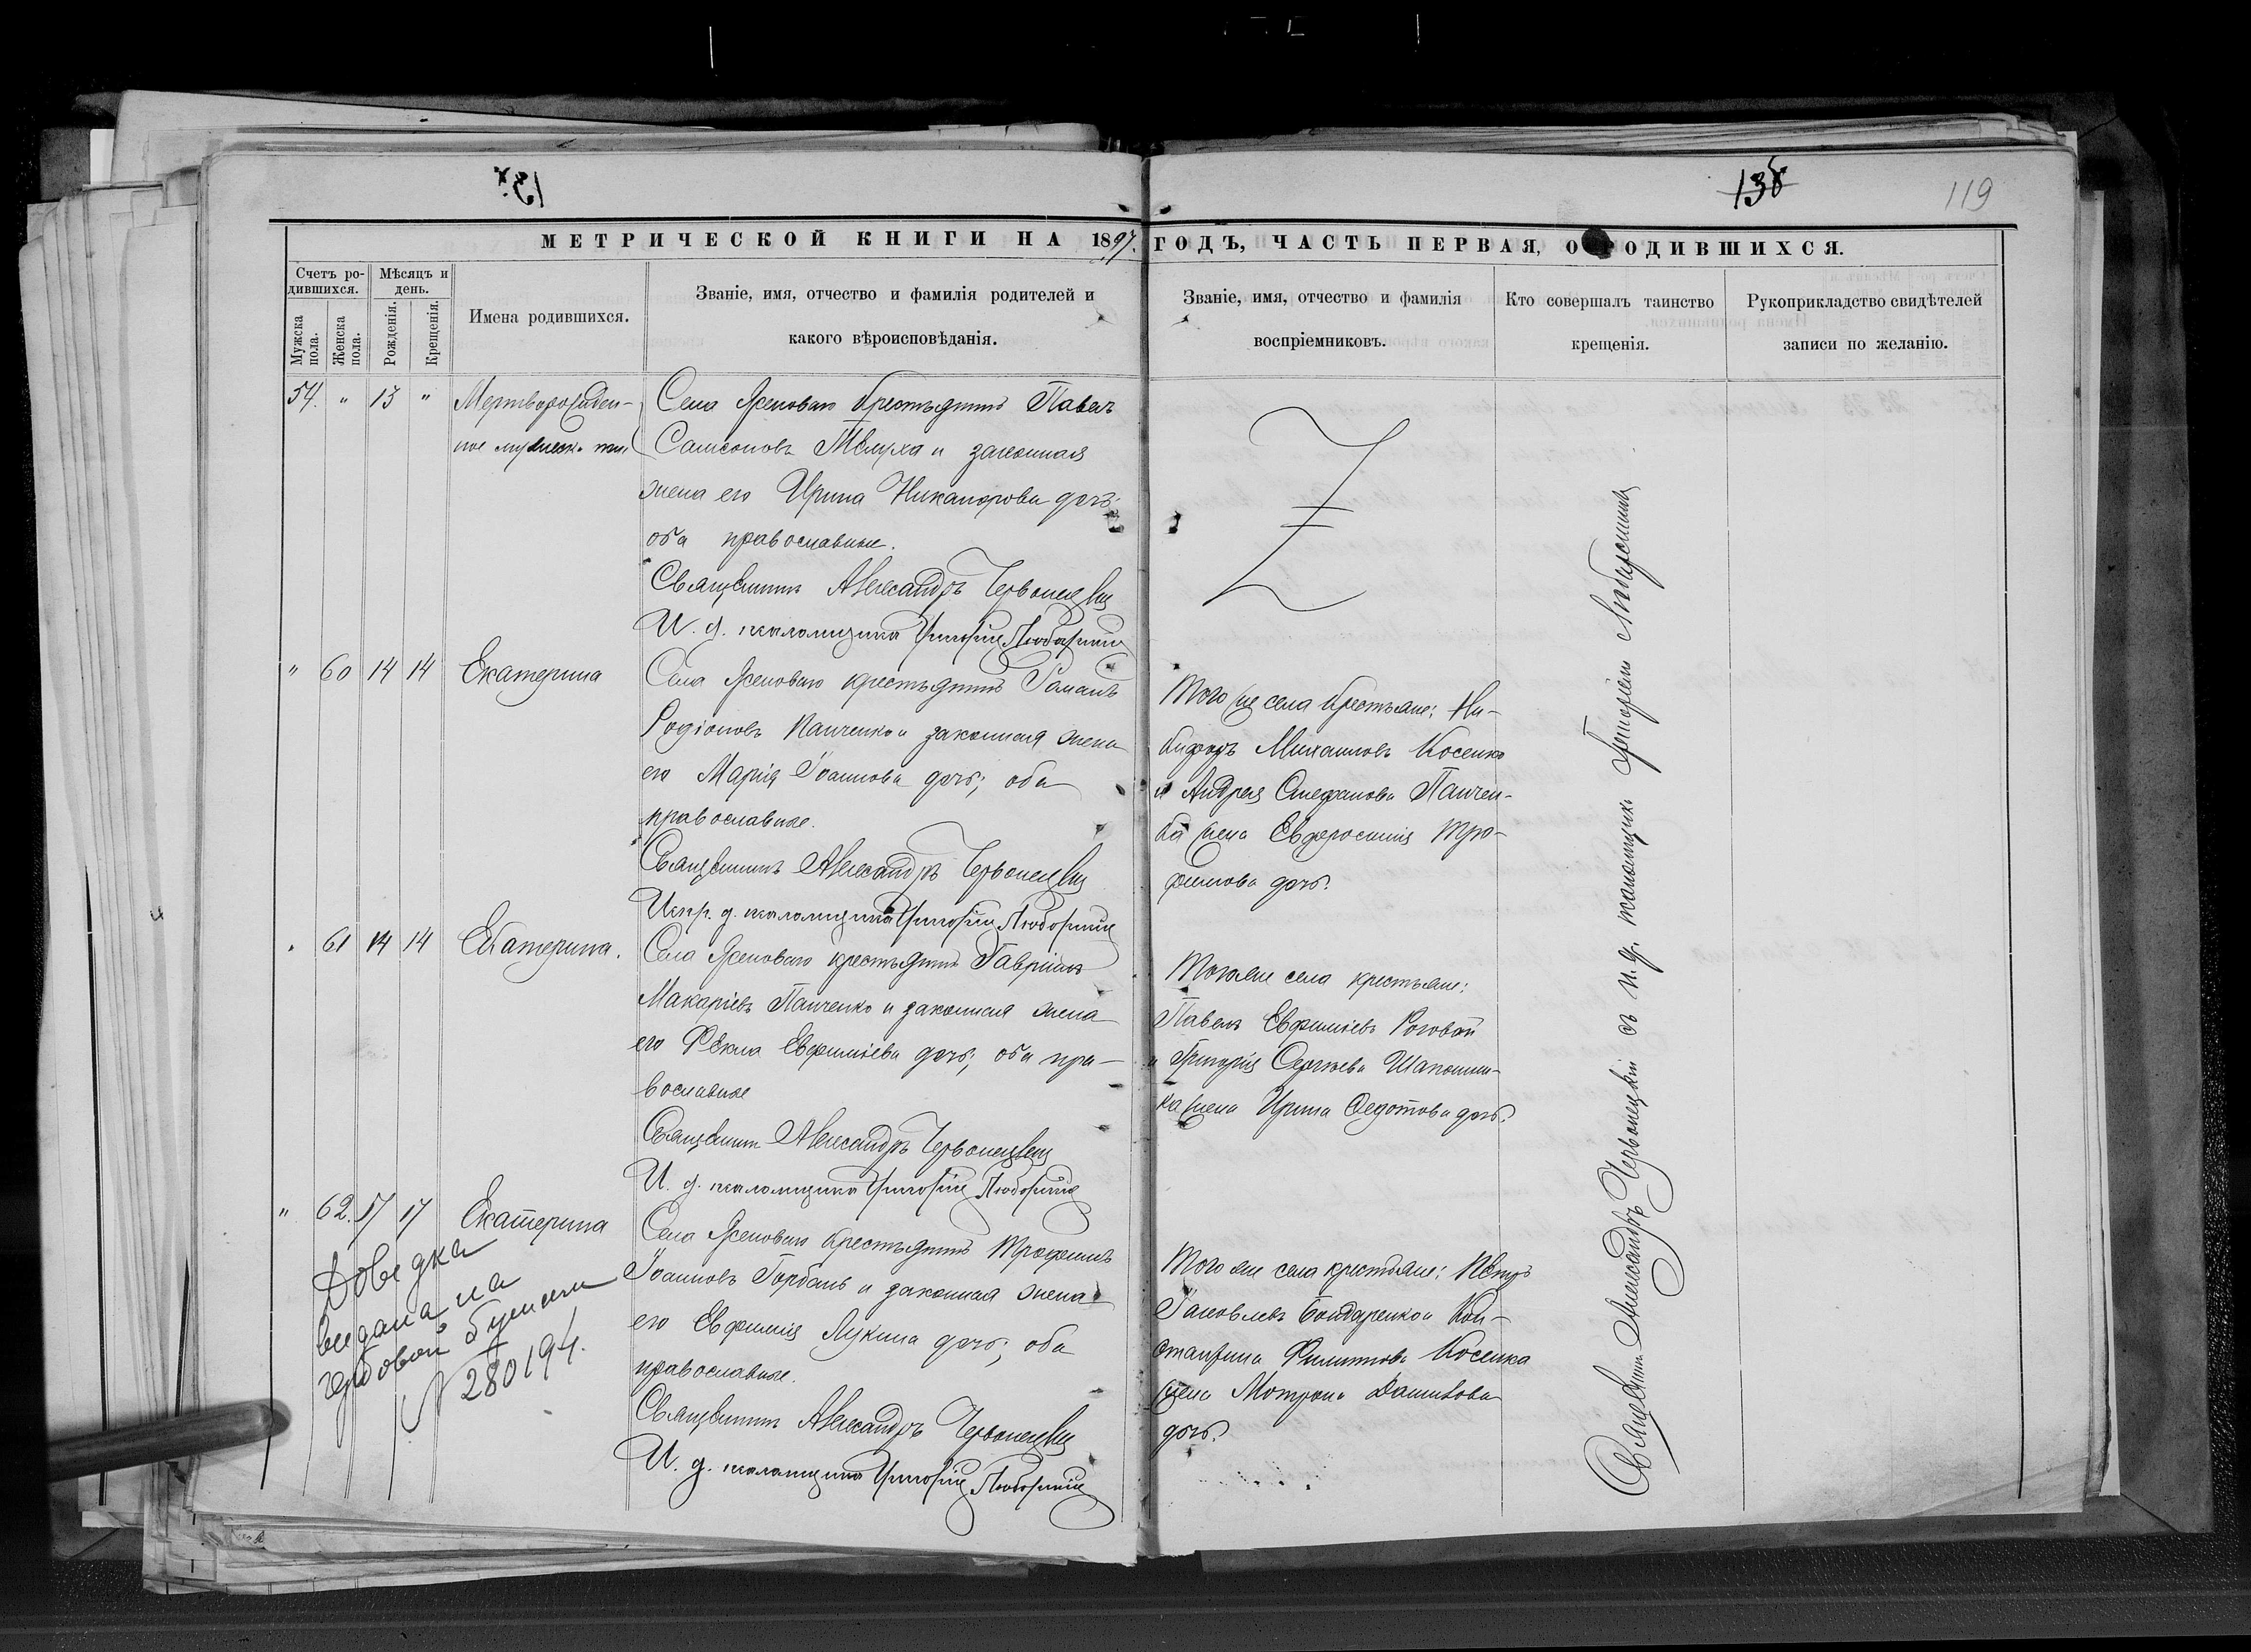 138
119
МЕТРИЧЕСКОЙ КНИГИ НА 1897. ГОДЪ, ЧАСТЬ ПЕРВАЯ, О РОДИВШИХСЯ.
Счетъ ро-
дившихся.
Мужска
пола.
Женска
пола.
Мѣсяцъ и
день.
Рожденія.
Крещенія.
Имена родившихся.
Званіе, имя, отчество и фамилія родителей и
какого вѣроисповѣданія.
Званіе, имя, отчество и фамилія
воспріемниковъ.
Кто совершалъ таинство
крещенія.
Рукоприкладство свидѣтелей
записи по желанію.
54. " 13 "
Мертворожден-
ное мужеск.
Села Ясеноваго крестьянинъ Павелъ
Самсоновъ и законная
жена его Ирина Никанорова дочь;
оба православные.
Священникъ Александръ Червонецкій
И. д. псаломщика Григорій Любарскій
" 60 14 14
Екатерина
Села Ясеноваго крестьянинъ Романъ
Родіоновъ Панченко и законная жена
его Марія Іоаннова дочь; оба
православные.
Священникъ Александръ Червонецкій
Испр. д. псаломщика Григорій Любарскій
Того же села крестьяне: Ни-
кифоръ Михаиловъ Косенко
и Андрея Стефанова Панчен-
ка жена Евфросинія Тро-
фимова дочь.
" 61 14 14
Екатерина.
Села Ясеноваго крестьянинъ Гавріилъ
Макаріевъ Панченко и законная жена
его Ѳекла Евфиміева дочь; оба пра-
вославные
Священникъ Александръ Червонецкій
И. д. псаломщика Григорій Любарскій
Того же села крестьяне:
Павелъ Евфиміевъ Роговой
и Григорія Сергіева Шапошни-
ка жена Ирина Федотова дочь.
" 62. 17 17
Екатерина
Села Ясеноваго крестьянинъ Трофимъ
Іоанновъ Горбань и законная жена
его Евфимія Лукина дочь; оба
православные.
Священникъ Александръ Червонецкій
И. д. псаломщика Григорій Любарскій
Того же села крестьяне: Петръ
Іаковлевъ Бондаренко и Кон-
стантина Филиппова Косенка
жена Матрона Даниилова
дочь.
Довідка
видана на
гербовой бумаги
N 280194.
Священникъ Александръ Червонецкій съ и. д. псаломщика Григоріемъ Любарскимъ